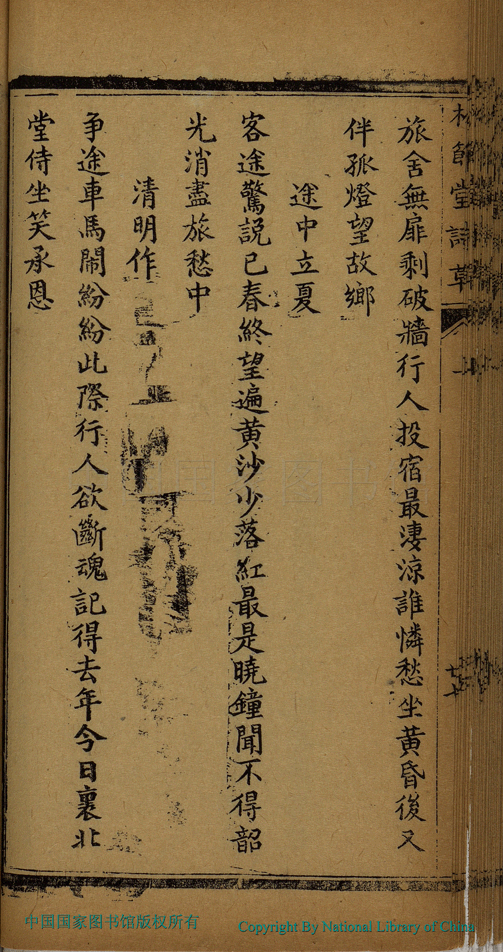 旅舍無扉剩破牆行人投宿最淒涼誰憐愁坐黃昏後又
伴孤燈望故鄉
途中立夏
客途驚説已春終望遍黃沙少落紅最是曉鐘聞不得韶
光消盡旅愁中
清明作
争途車馬鬧紛紛此際行人欲斷魂記得去年今日裏北
堂侍坐笑承恩
中国国家图书馆版权所有
Copyright By National Library of China